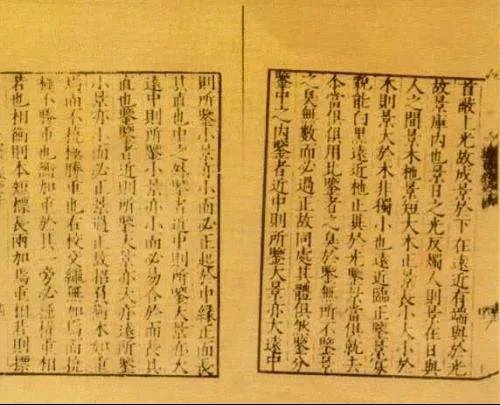 首蔽上光故成景於下在遠近有端與於光
故景庫內也景日之光反燭人則景在日與
人之間景木柂景短大木正景長小大小於
木則景大於木非獨小也遠近臨正鑒景寡
貌能白黑遠近柂正異於光鑒景當俱就去
尒當俱俱用北鑒者之臭於鑒無所不鑒景
之臭無數而必過正故同處其體俱然鑒分
鑒中之內鑒者近中則所鑒大景亦大遠中
則所鑒小景亦小而必正起於中緣正而長
其直也中之外鑒者近中則所鑒大景亦大
遠中則所鑒小景亦小而必易合於而長其
直也鑒鑒者近則所鑒大景亦大亦遠所鑒
小景亦小而必正景過正故招負衡木如重
焉而不撓極勝重也右校交繩無加焉而撓
極不勝重也衡加重於其一旁必捶權重相
若也相衡則本短標長兩加焉重相若則標